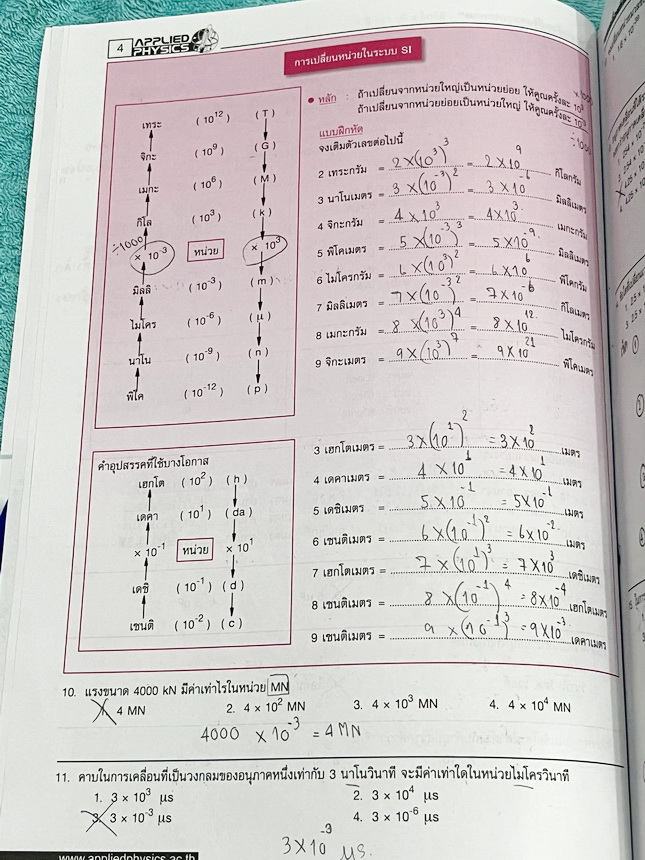 4 APPLIED PHYSICS
การเปลี่ยนหน่วยในระบบ SI
• หลัก : ถ้าเปลี่ยนจากหน่วยใหญ่เป็นหน่วยย่อย ให้คูณครั้งละ 10³ ×1000
ถ้าเปลี่ยนจากหน่วยย่อยเป็นหน่วยใหญ่ ให้คูณครั้งละ 10⁻³ ÷1000
เทระ (10¹²) (T)
จิกะ (10⁹) (G)
เมกะ (10⁶) (M)
กิโล (10³) (k)
÷1000
× 10⁻³ หน่วย × 10³
มิลลิ (10⁻³) (m)
ไมโคร (10⁻⁶) (μ)
นาโน (10⁻⁹) (n)
พิโค (10⁻¹²) (p)
แบบฝึกหัด
จงเติมตัวเลขต่อไปนี้
2 เทระกรัม = 2×(10³)³ = 2×10⁹ กิโลกรัม
3 นาโนเมตร = 3×(10⁻³)² = 3×10⁻⁶ มิลลิเมตร
4 จิกะกรัม = 4×10³ = 4×10³ เมกะกรัม
5 พิโคเมตร = 5×(10⁻³)³ = 5×10⁻⁹ มิลลิเมตร
6 ไมโครกรัม = 6×(10³)² = 6×10⁶ พิโคกรัม
7 มิลลิเมตร = 7×(10⁻³)² = 7×10⁻⁶ กิโลเมตร
8 เมกะกรัม = 8×(10³)⁴ = 8×10¹² ไมโครกรัม
9 จิกะเมตร = 9×(10³)⁷ = 9×10²¹ พิโคเมตร
คำอุปสรรคที่ใช้บางโอกาส
เฮกโต (10²) (h)
เดคา (10¹) (da)
× 10⁻¹ หน่วย × 10¹
เดซิ (10⁻¹) (d)
เซนติ (10⁻²) (c)
3 เฮกโตเมตร = 3×(10¹)² = 3×10² เมตร
4 เดคาเมตร = 4×10¹ = 4×10¹ เมตร
5 เดซิเมตร = 5×10⁻¹ = 5×10⁻¹ เมตร
6 เซนติเมตร = 6×(10⁻¹)² = 6×10⁻² เมตร
7 เฮกโตเมตร = 7×(10¹)³ = 7×10³ เดซิเมตร
8 เซนติเมตร = 8×(10⁻¹)⁴ = 8×10⁻⁴ เฮกโตเมตร
9 เซนติเมตร = 9×(10⁻¹)³ = 9×10⁻³ เดคาเมตร
10. แรงขนาด 4000 kN มีค่าเท่าไรในหน่วย MN
1. 4 MN 2. 4 × 10² MN 3. 4 × 10³ MN 4. 4 × 10⁴ MN
4000 × 10⁻³ = 4 MN
11. คาบในการเคลื่อนที่เป็นวงกลมของอนุภาคหนึ่งเท่ากับ 3 นาโนวินาที จะมีค่าเท่าใดในหน่วยไมโครวินาที
1. 3 × 10³ μs 2. 3 × 10⁴ μs
3. 3 × 10⁻³ μs 4. 3 × 10⁻⁶ μs
3×10⁻³ μs.
www.appliedphysics.ac.th